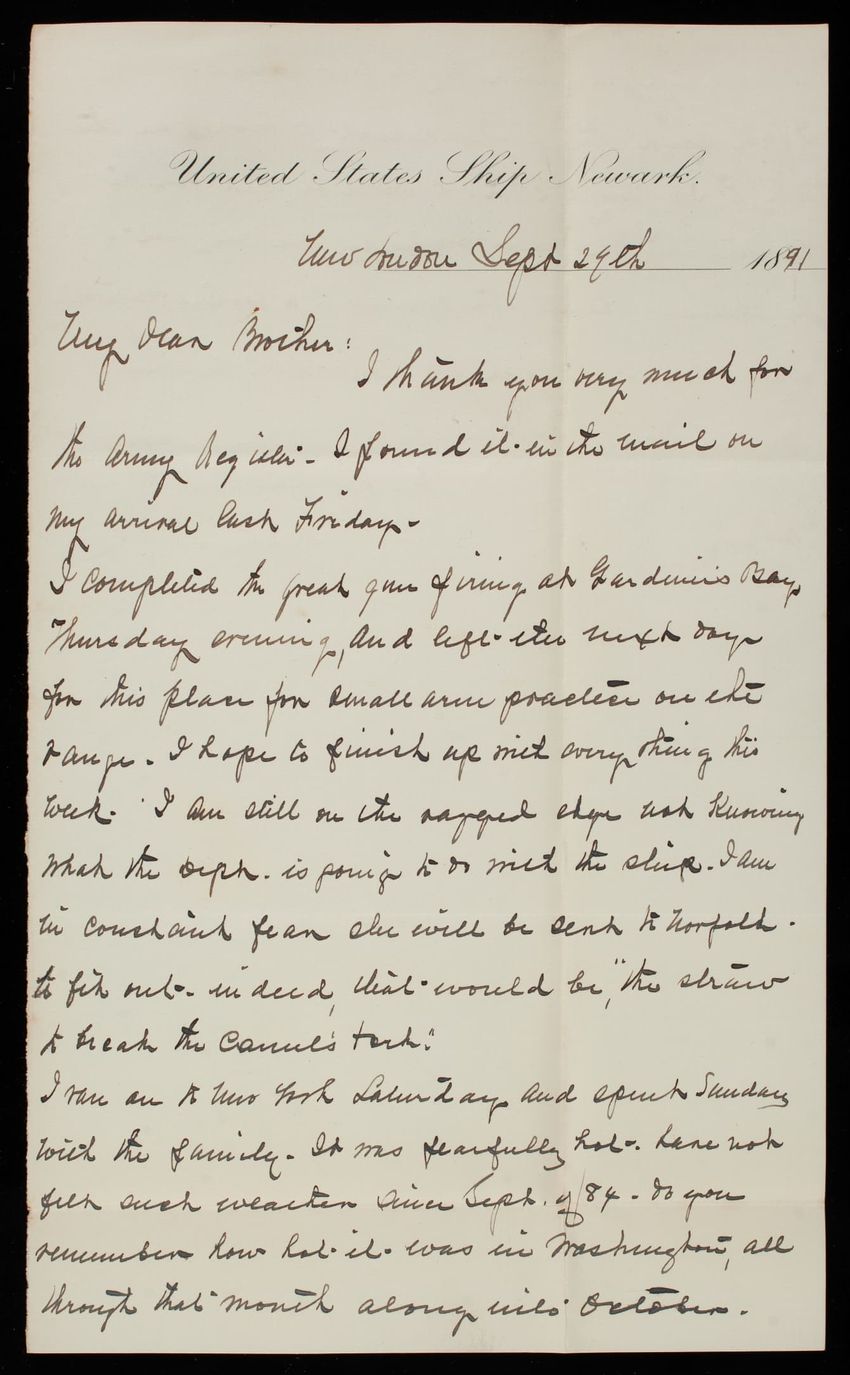 United States Ship Newark.
New London Sept 29th 1891
My Dear Brother:
I thank you very much for
the Army Register - I found it in the mail on
my arrival last Friday -
I completed the great gun firing at Gardiner's Bay
Thursday evening, and left the next day
for this place for small arm practice on the
range - I hope to finish up with every thing this
week. I am still on the ragged edge not knowing
what the Dept. is going to do with the ship. I am
in constant fear she will be sent to Norfolk -
to fit out - indeed, that would be, "the straw
to break the Camel's back".
I ran on to New York Saturday and spent Sunday
with the family - It was fearfully hot - have not
felt such weather since Sept. of /84 - do you
remember how hot it was in Washington, all
through that month along into October.